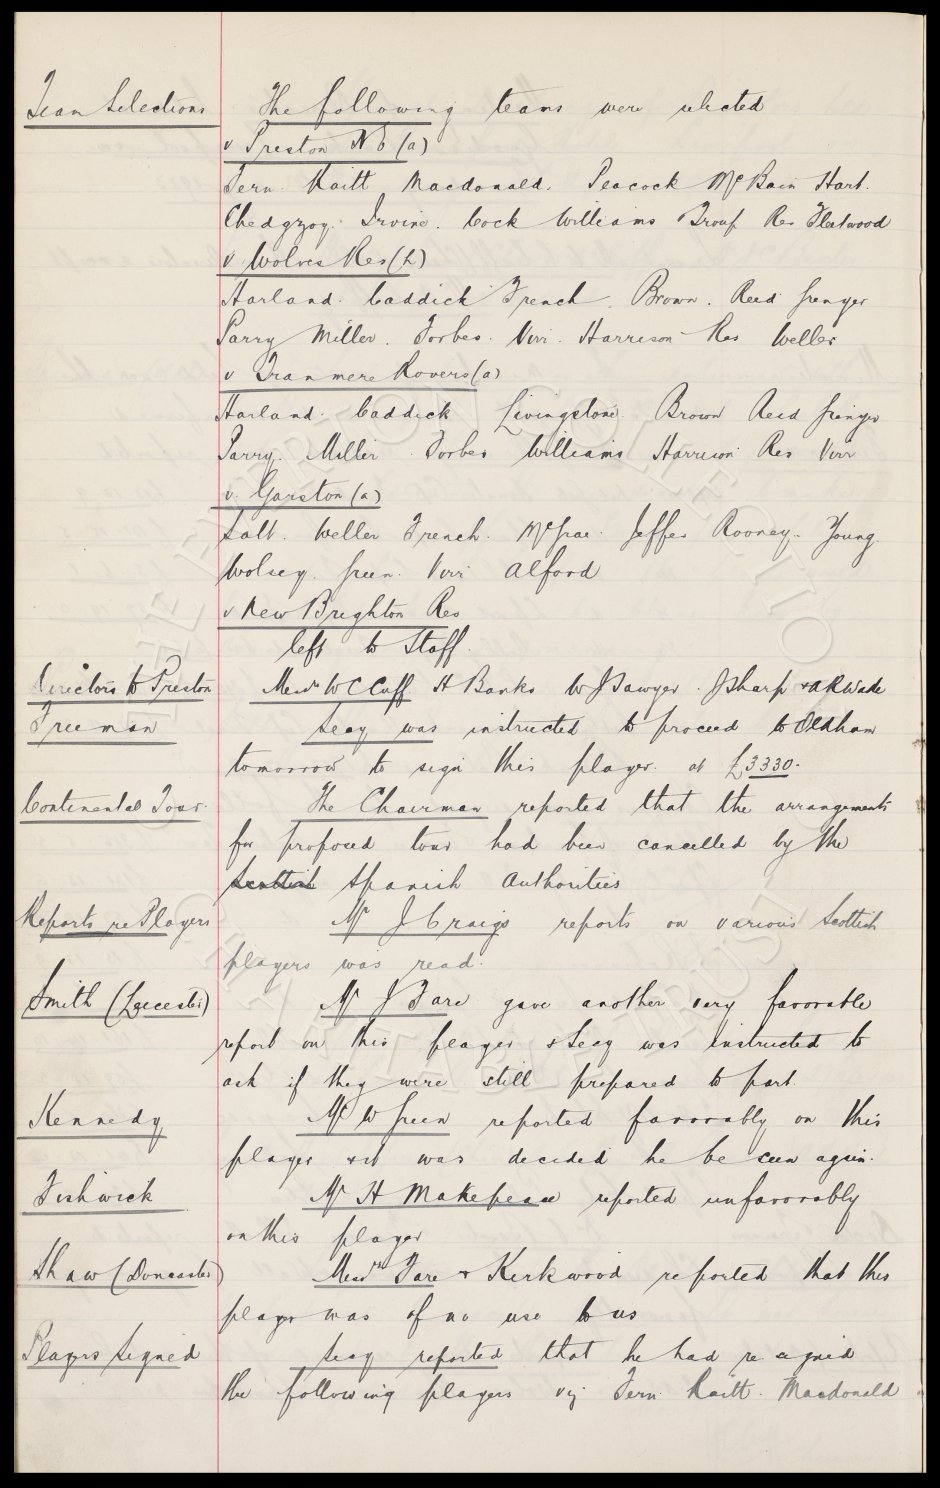 Team Selections The following teams were selected
v Preston N E (a)
Fern. Raitt Macdonald. Peacock McBain Hart.
Chedgzoy. Irvine. Cock Williams Troup Res Fleetwood
v Wolves Res (h)
Harland. Caddick French. Brown. Reid Grenyer
Parry Miller. Forbes. Virr. Harrison Res Weller
v Tranmere Rovers (a)
Harland. Caddick Livingstone. Brown Reid Grenyer
Parry. Miller. Forbes Williams Harrison Res Virr
v. Garston (a)
Salt. Weller French. McGrae. Jeffes Rooney. Young.
Wolsey. Green. Virr Alford
v New Brighton Res
left to Staff.
Directors to Preston Messrs W C Cuff H Banks W J Sawyer. J Sharp & A R Wade
Freeman Secy was instructed to proceed to Oldham
tomorrow to sign this player at £3330.
Continental Tour. The Chairman reported that the arrangements
for proposed tour had been cancelled by the
Scottish Spanish Authorities
Reports re Players Mr J Craigs reports on various Scottish
players was read.
Smith (Leicester) Mr J Fare gave another very favorable
report on this player & Secy was instructed to
ask if they were still prepared to part.
Kennedy Mr W Green reported favorably on this
player & it was decided he be seen again.
Fishwick Mr H Makepeace reported unfavorably
on this player
Shaw (Doncaster) Messrs Fare & Kirkwood reported that this
player was of no use to us
Players Signed Secy reported that he had re signed
the following players viz Fern. Raitt. Macdonald